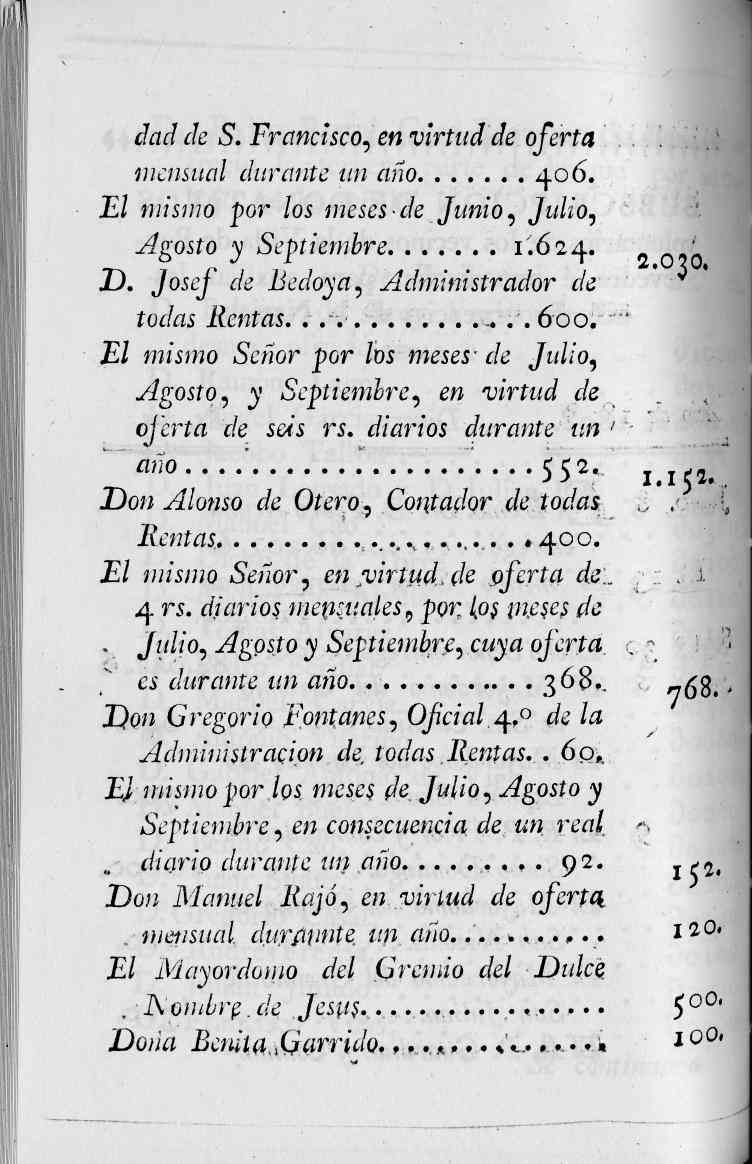 dad de S. Francisco, en virtud de oferta
mensual durante un año. . . . . . . 406.
El mismo por los meses de Junio, Julio,
Agosto y Septiembre. . . . . . . 1.624. 2.030.
D. Josef de Bedoya, Administrador de
todas Rentas. . . . . . . . . . . . . . . 600.
El mismo Señor por los meses de Julio,
Agosto, y Septiembre, en virtud de
oferta de seis rs. diarios durante un
año . . . . . . . . . . . . . . . . . . . . . . 552. 1.152.
Don Alonso de Otero, Contador de todas
Rentas. . . . . . . . . . . . . . . . . . . . 400.
El mismo Señor, en virtud de oferta de
4 rs. diarios mensuales, por los meses de
Julio, Agosto y Septiembre, cuya oferta
es durante un año. . . . . . . . . . . . 368. 768.
Don Gregorio Fontanes, Oficial 4.º de la
Administracion de todas Rentas. . 60.
El mismo por los meses de Julio, Agosto y
Septiembre, en consecuencia de un real
diario durante un año. . . . . . . . . 92. 152.
Don Manuel Rajó, en virtud de oferta
mensual durannte un año. . . . . . . . . . . 120.
El Mayordomo del Gremio del Dulce
Nombre de Jesus. . . . . . . . . . . . . . . . . . 500.
Doña Benita Garrido. . . . . . . . . . . . . . . . . 100.